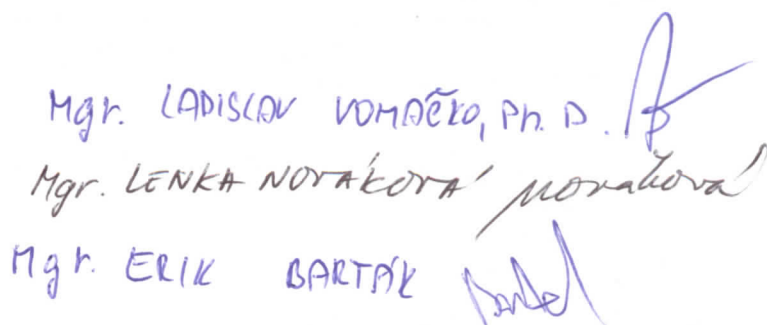 Mgr. LADISLAV VOMÁČKO, Ph.D.
Mgr. LENKA NOVÁKOVÁ Nováková
Mgr. ERIK BARTÁK